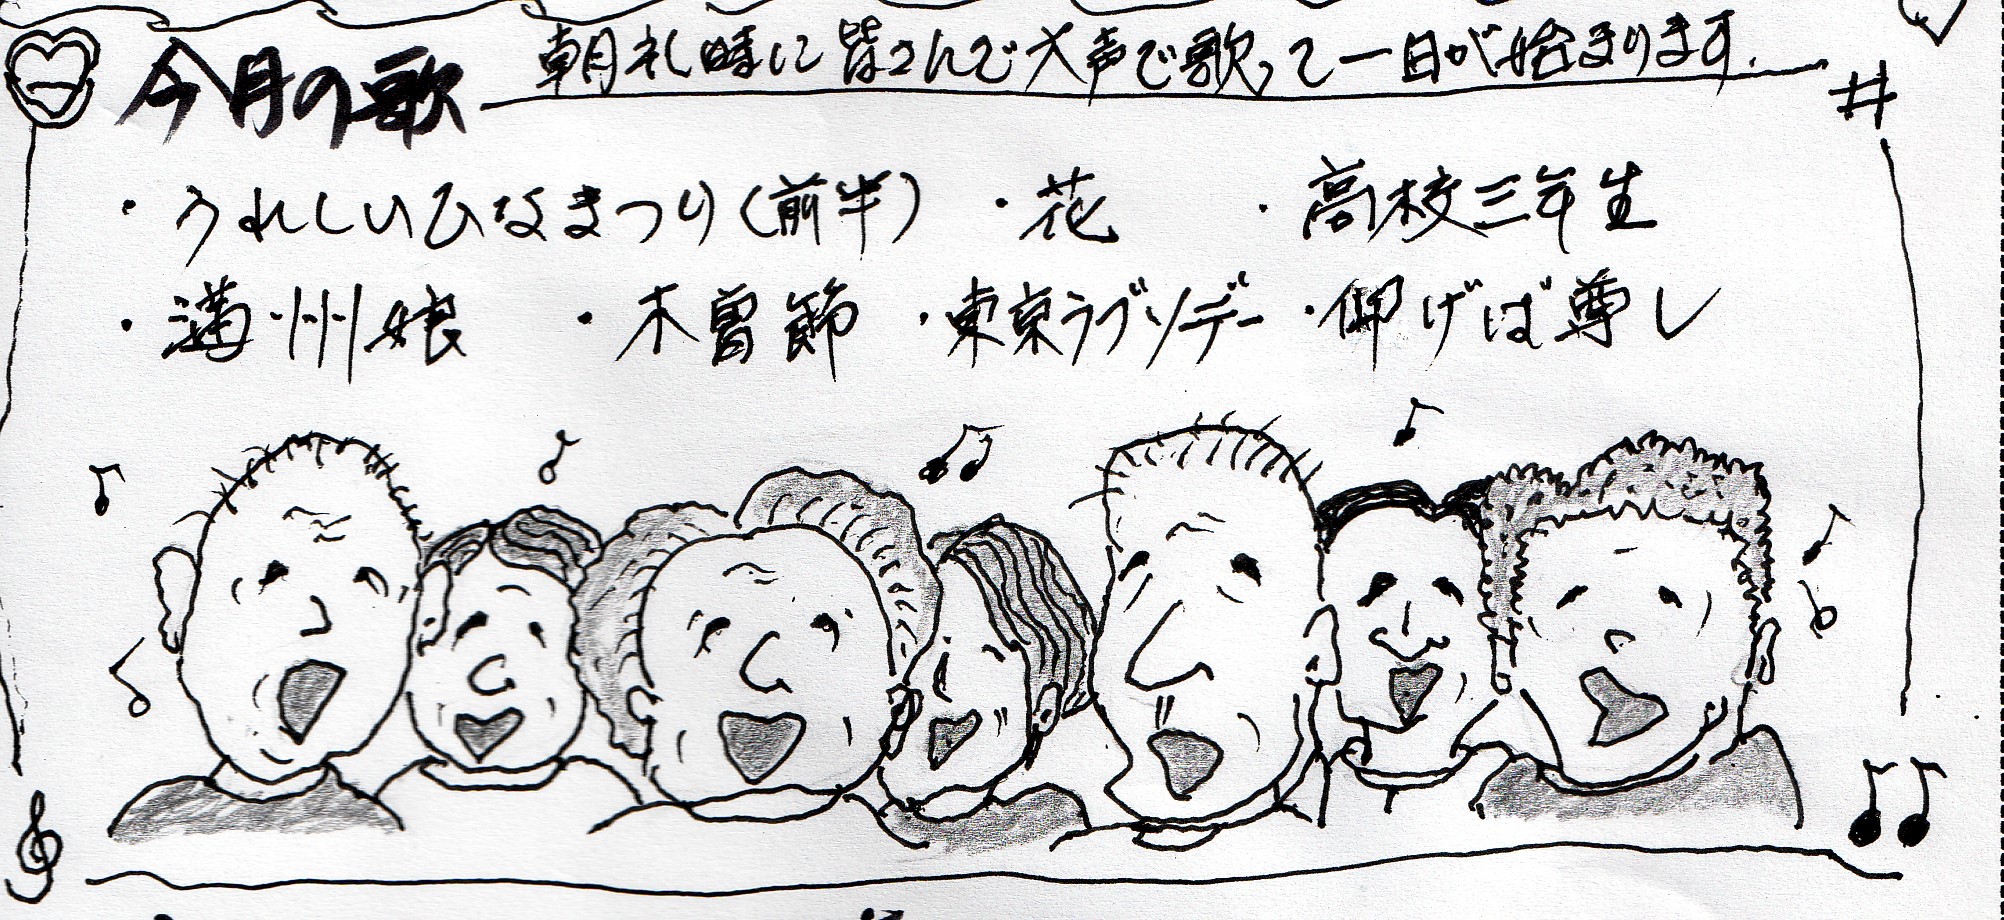 今月の歌 朝礼時に皆さんで大声で歌って一日が始まります.
・うれしいひなまつり(前半) ・花 ・高校三年生
・満州娘 ・木曽節 ・東京ラプソデー ・仰げば尊し